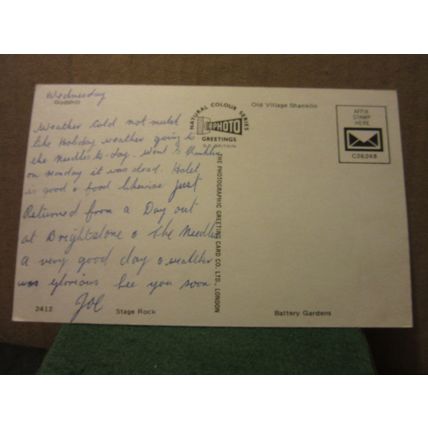 Wednesday
Godshill
Weather Cold not much
like Holiday weather going to
the Needles to-day. Went to Shanklin
on Monday it was dead. Hotel
is good & food likewise Just
Returned from a Day out
at Brightstone & The Needles
a very good day & weather
was glorious See you soon
Joe
2412
Stage Rock
NATURAL COLOUR SERIES
PHOTO
GREETINGS
THE PHOTOGRAPHIC GREETING CARD CO. LTD., LONDON
Old Village Shanklin
AFFIX
STAMP
HERE
C26248
Battery Gardens